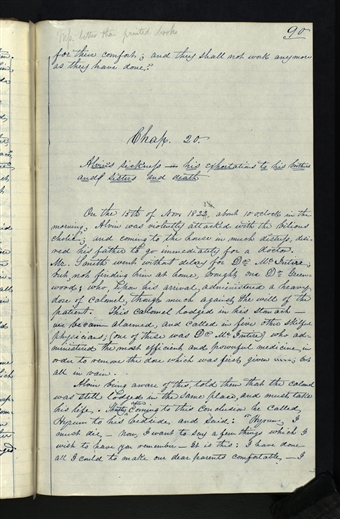 90
for their comfort; and they shall not work any more
as they have done."
Chap. 20.
Alvin's sickness — his exhortations to his brothers
and sisters and death
On the 15th of Nov 1822, about 10 o'clock in the
morning, Alvin was violently attacked with the bilious
cholic; and coming to the house in much distress, de-
sired his father to go immediately for a doctor.
Mr. Smith went without delay for Dr McIntire;
but, not finding him at home, brought one Dr Green-
wood; who, upon his arrival, administered a heavy
dose of calomel, though much against the will of the
patient. This calomel lodged in his stomach —
we became alarmed, and called in five other skilful
physicians; (one of these was Dr McIntire) who ad-
ministered the most efficient and powerful medicine, in
order to remove the dose which was first given; but
all in vain.
Alvin being aware of this, told them that the calomel
was still lodged in the same place, and must take
his life. Coming to this conclusion he called
Hyrum to his bedside, and said: "Hyrum, I
must die, — now, I want to say a few things which I
wish to have you remember — It is this: I have done
all I could to make our dear parents comfortable, — I